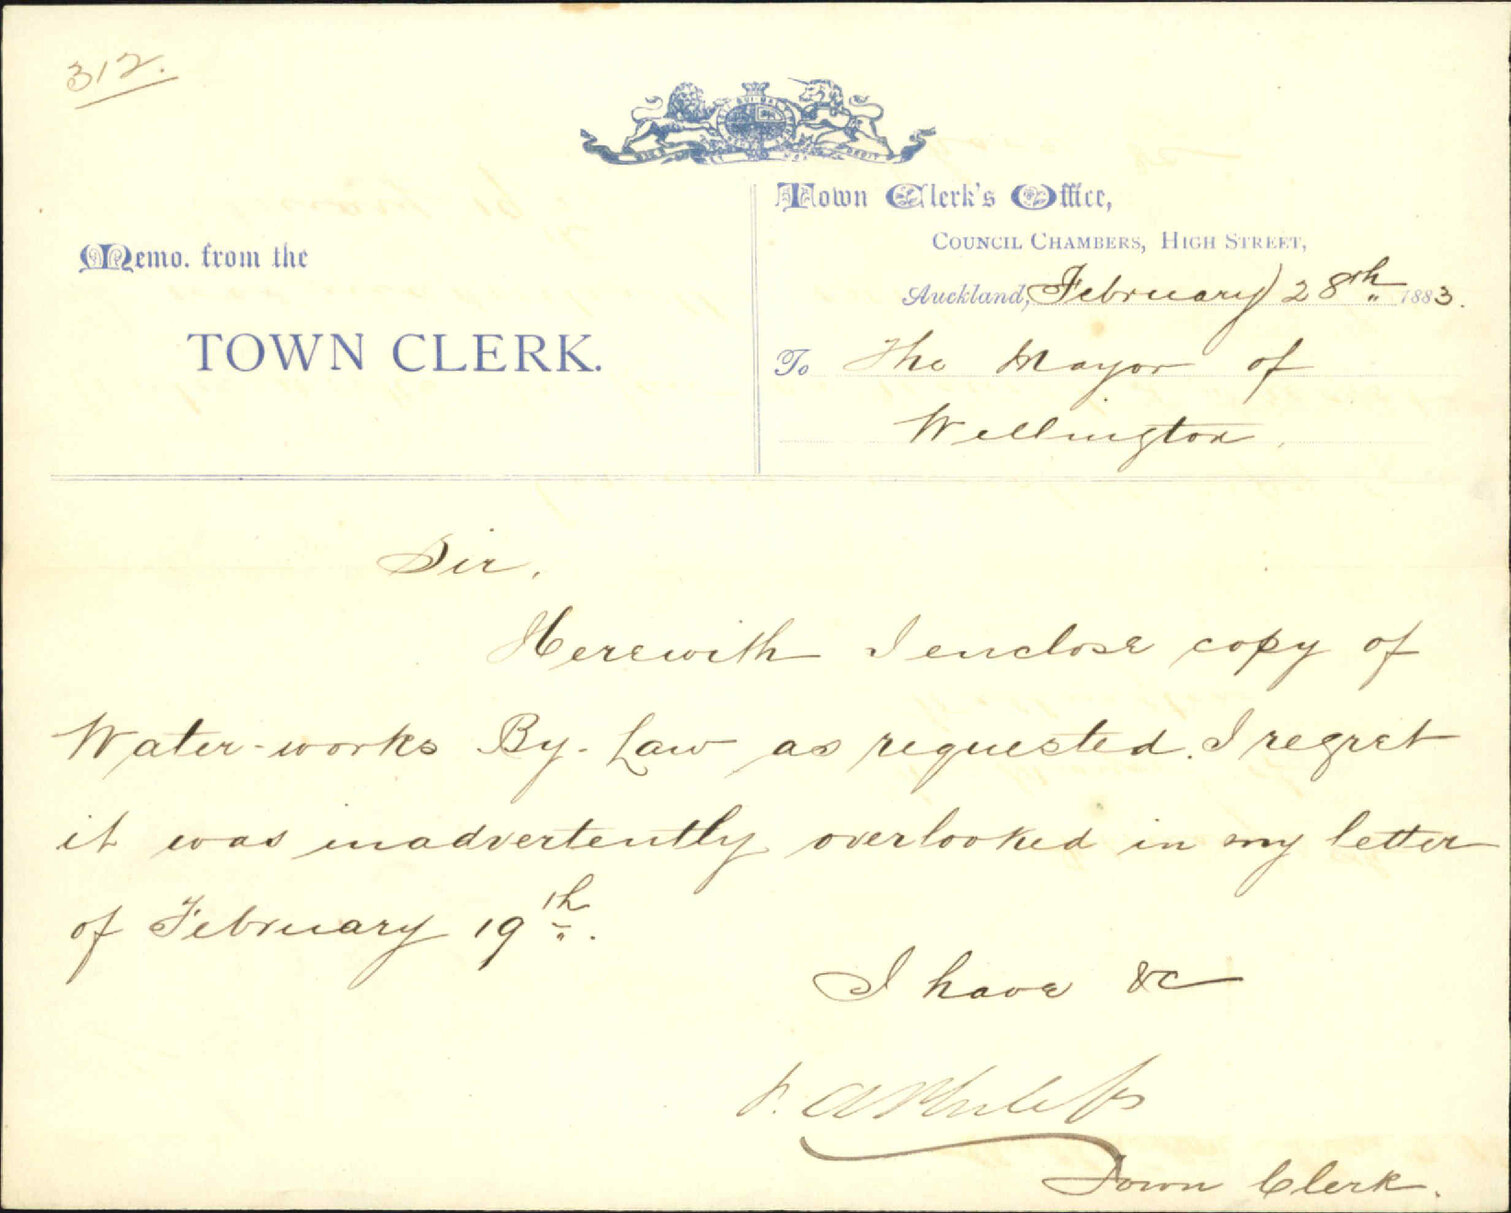 312.
Memo. from the
TOWN CLERK.
Town Clerk's Office,
COUNCIL CHAMBERS, HIGH STREET,
Auckland, February 28th 1883.
To The Mayor of
Wellington.
Sir,
Herewith I enclose copy of
Water-works By-Law as requested. I regret
it was inadvertently overlooked in my letter
of February 19th.
I have &c
Town Clerk.